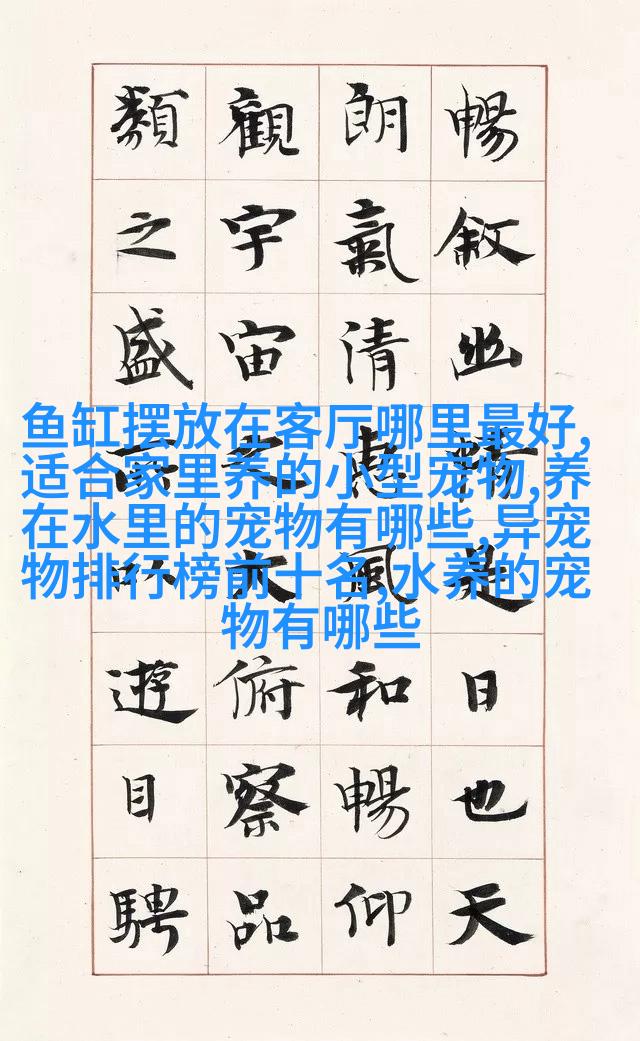 暢敘幽情是日也天
朗氣清惠風和暢仰
觀宇宙之大俯察品
類之盛所以遊目騁
鱼缸摆放在客厅哪里最好,
适合家里养的小型宠物,养
在水里的宠物有哪些,异宠
物排行榜前十名,水养的宠
物有哪些